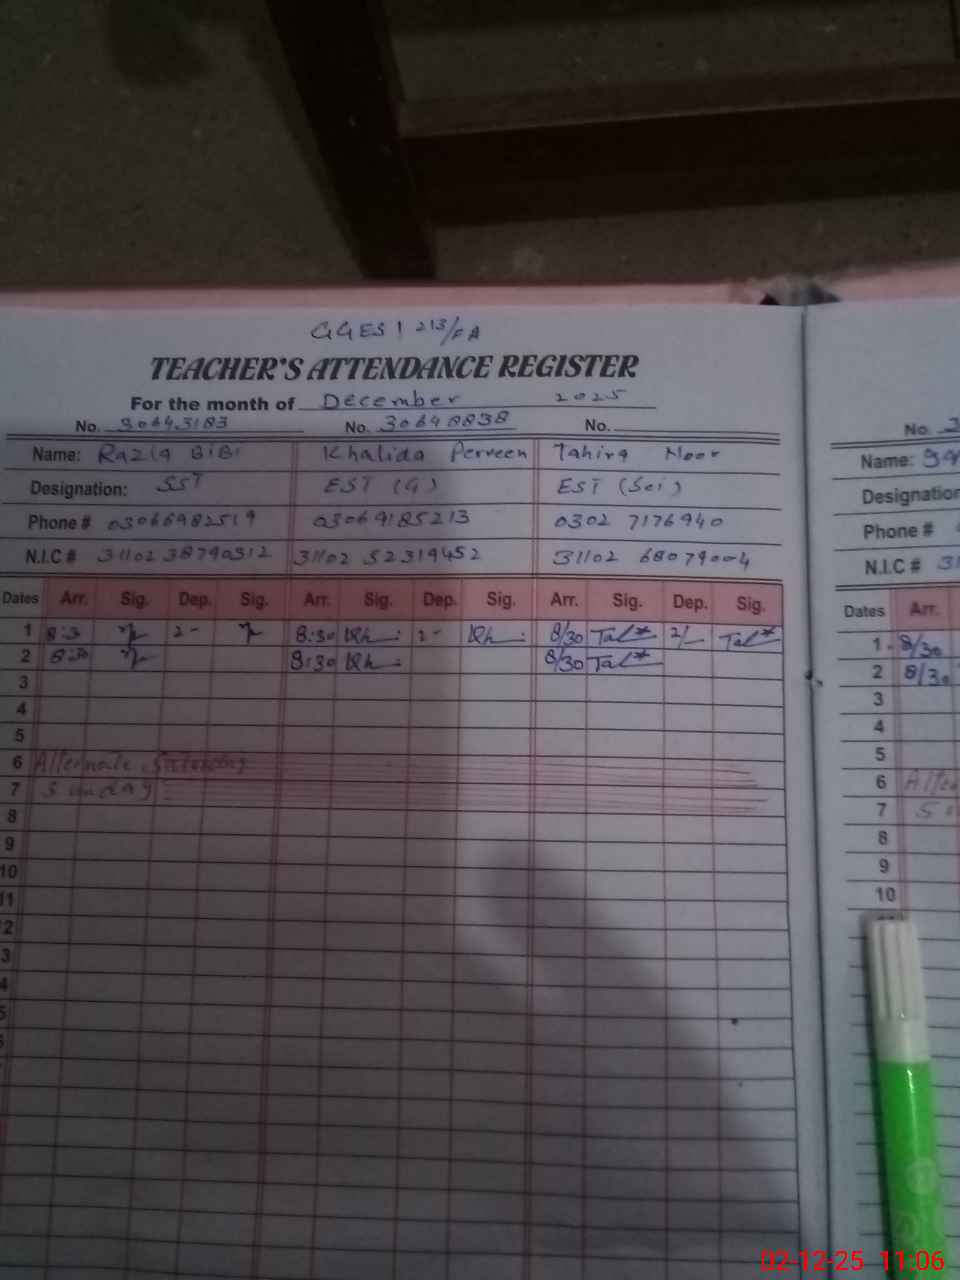 GGES | 213/FA
TEACHER'S ATTENDANCE REGISTER
For the month of December 2025
No. 30643183 No. 30648838 No.
Name: Razia BiBi Khalida Perveen Tahira Noor
Designation: SST EST (G) EST (Sci)
Phone # 03066982519 03069185213 0302 7176940
N.I.C # 31102 38790312 31102 52319452 31102 68079004
Dates Arr. Sig. Dep. Sig. Arr. Sig. Dep. Sig. Arr. Sig. Dep. Sig.
1 8:3 2- 8:30 Kh 2- Kh 8/30 Tal* 2/- Tal*
2 8:30 8:30 Kh 8/30 Tal*
3
4
5
6 Alternate Saturday
7 Sunday
8
9
10
11
2
3
4
5
No.
Name:
Designation
Phone #
N.I.C # 31
Dates Arr.
1 8/30
2 8/30
3
4
5
6
7
8
9
10
02-12-25 11:06